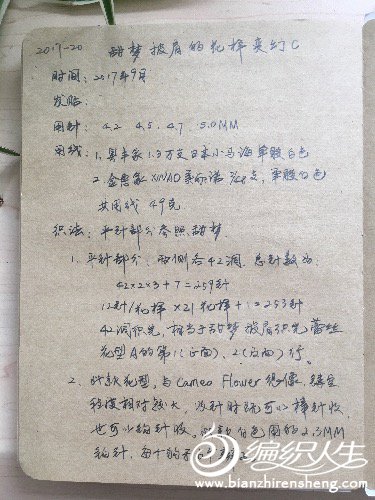 2017-20 甜梦披肩的花样变幻C
时间：2017年9月
发贴：
用针：4.2 4.5 4.7 5.0MM
用线：1. 1.3万支日本小马海 单股白色
2. 白色
共用线 49克
织法：平针部分参照甜梦
1. 平针部分：两侧各42洞，总针数为：
42×2×3+7=259针
12针/花样×21花样+1=253针
42洞织完，相当于甜梦披肩织完蕾丝
花型A的第1(正面)、2(反面)行。
2. 此款花型，与Cameo Flower很像，
程度相对较大，收针时既可以棒针收
也可以钩针收。白色用的2.3MM
钩针，每个
编织人生
www.bianzhirensheng.com